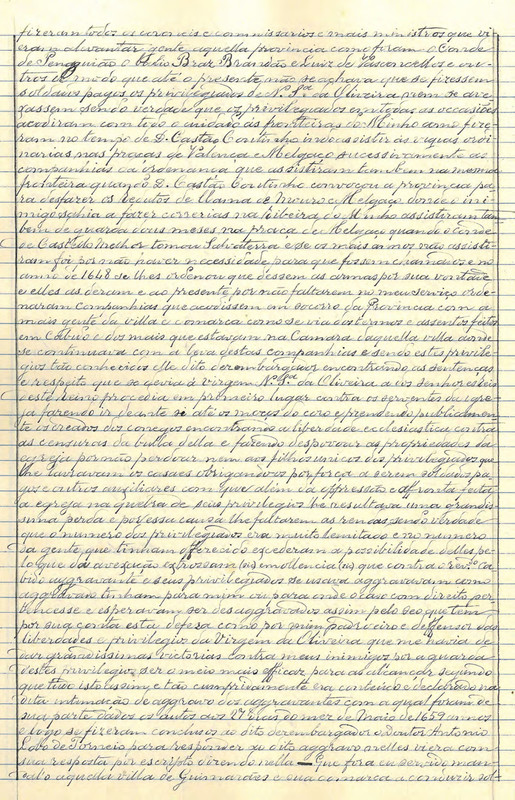 fizeram todos os coroneis e commissarios e mais ministros que vi
eram alevantar gente aquella provincia como foram o Conde
de Penaguião o Fabio Braz Brandão e Luiz de Vasconcellos e ou
tros de modo que até o presente não se achava que se fizessem
soldados pagos os privilegiados de N. Sra. da Oliveira nem se avi
zassem sendo verdade que os privilegiados em todas as occasiões
acodiram com todo o cuidado ás fronteiras do Minho como fize
ram no tempo de D. Gastão Coutinho indo assistir ás vigias ordi
narias nas praças de Valença e Melgaço successivamente as
companhias da ordenança que assistiram tambem na mesma
fronteira quando D. Gastão Coutinho convocou a provincia pa
ra desfazer os reductos de Chama de Mouro e Melgaço donde o ini
migo sahia a fazer correrias na ribeira do Minho assistiram tam
bem de guarda dous mezes na praça de Melgaço quando o Conde
de Castello Melhor tomou Salvaterra e se os mais annos não assisti
ram foi por não haver necessidade para que fossem chamados e no
anno de 1648 se lhes ordenou que dessem as armas por sua vontade
e elles as deram e ao presente por não faltarem no meu serviço orde
naram companhias que acodissem em soccorro da Provincia com a
mais gente da villa e comarca como se via dos termos e assentos feitos
em Cabido e dos mais que estavam na Camara daquella villa aonde
se continuava com a leva destas companhias e sendo estes privile
gios tão conhecidos elle dito desembargador encontrando as sentenças
e respeito que se devia á virgem N. Sra. da Oliveira a vos senhor e reis
deste reino procedia em primeiro lugar contra os serventes da egre
ja fazendo ir deante si até os moços do coro e prendendo publicamen
te os creados dos conegos encontrando a liberdade ecclesiastica contra
as censuras da bulla della e fazendo despovoar as propriedades da
egreja por não perdoar nem aos filhos unicos dos privilegiados que
lhe lavravam os casaes obrigando-os por força a serem soldados pa
gos e outros auxiliares com que além da oppressão e affronta feita
á egreja na quebra de seus privilegios lhe resultava uma grandis
sima perda e por essa causa lhe faltarem as rendas, sendo verdade
que o numero dos privilegiados era muito limitado e no numero
da gente que tinham offerecido excederam a possibilidade delles pe
lo que da avexação extrosam (sic) e mollencia (sic) que contra o Revdo. Ca
bido aggravante e seus privilegiados se usava aggravavam como
aggravado tinham para mim ou para onde o caso com direito per
tencesse e esperavam ser desaggravados assim pelo zelo que tem
por sua conta esta defesa como por mim padroeiro e deffensor das
liberdades e privilegios da Virgem da Oliveira que me havia de
dar grandissimas victorias contra meus inimigos por a guarda
destes privilegios ser o meio mais efficaz para as alcançar segundo
que tudo isto assim e tão cumpridamente era conteudo e declarado na
dita intimação de aggravo dos aggravantes com a qual foram de
sua parte dados os autos aos 27 dias do mez de Maio de 1659 annos
e logo se fizeram conclusos ao dito desembargador o Doutor Antonio
Lobo de Torneio para responder ao dito aggravo e nelles viera com
sua resposta por escripto dizendo nella — Que fora eu servido man
dal-o áquella villa de Guimarães e sua comarca a conduzir sol-